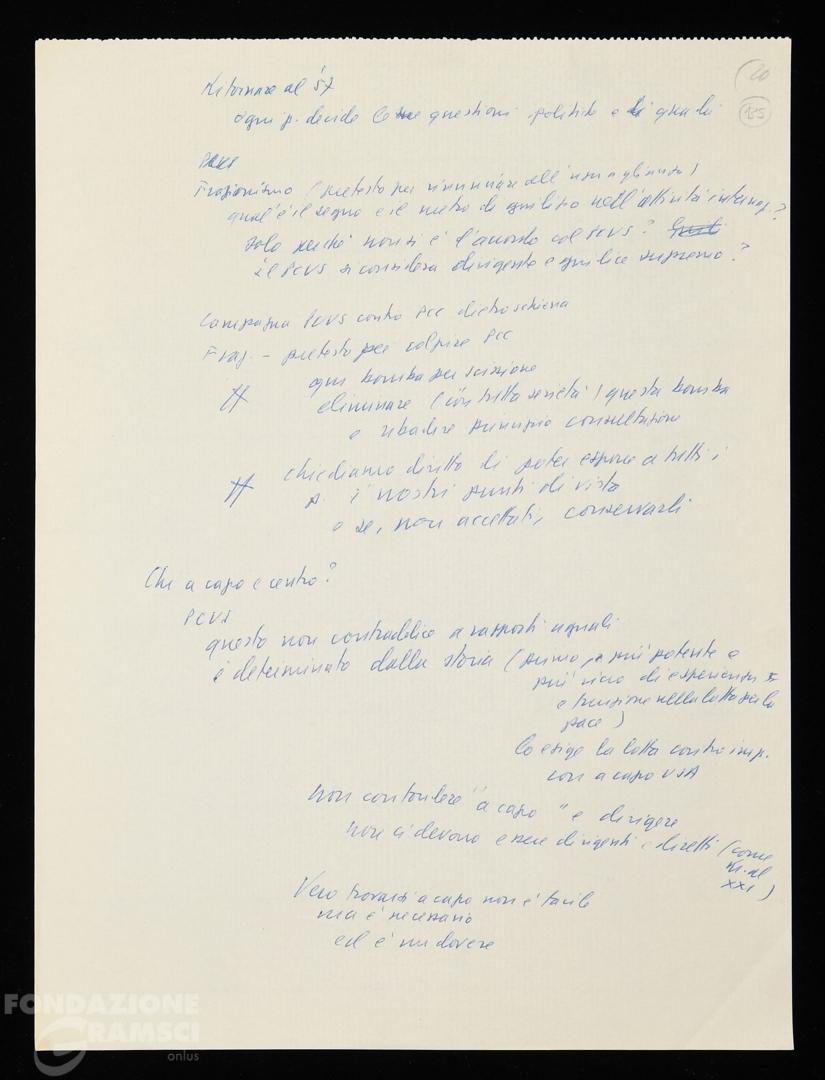 20
155
Ritornare al '57
ogni p. decide come questioni politiche e di quali
PCUS
Frazionismo (pretesto per rinunciare all'
qual'è il segno e il metro di giudizio nell'attività internaz.?
solo perché non si è d'accordo col PCUS?
il PCUS si considera dirigente e giudice supremo?
Campagna PCUS contro PCC dietro schiena
Fraz. – pretesto per colpire PCC
ogni bomba per scissione
# eliminare (con tutta serietà) questa bomba
e ribadire principio consultazione
# chiediamo diritto di poter esporre a tutti i
p. i nostri punti di vista
e se, non accettati, conservarli
Chi a capo e centro?
PCUS
questo non contraddice a rapporti uguali
è determinato dalla storia (primo, + più potente e
più ricco di esperienza
e funzione nella lotta per la
pace)
Lo esige la lotta contro imp.
con a capo USA
non confondere "a capo" e dirigere
non ci devono essere dirigenti e diretti (come
al
XXI)
Vero trovarsi a capo non è facile
ma è necessario
ed è un dovere
FONDAZIONE
GRAMSCI
onlus